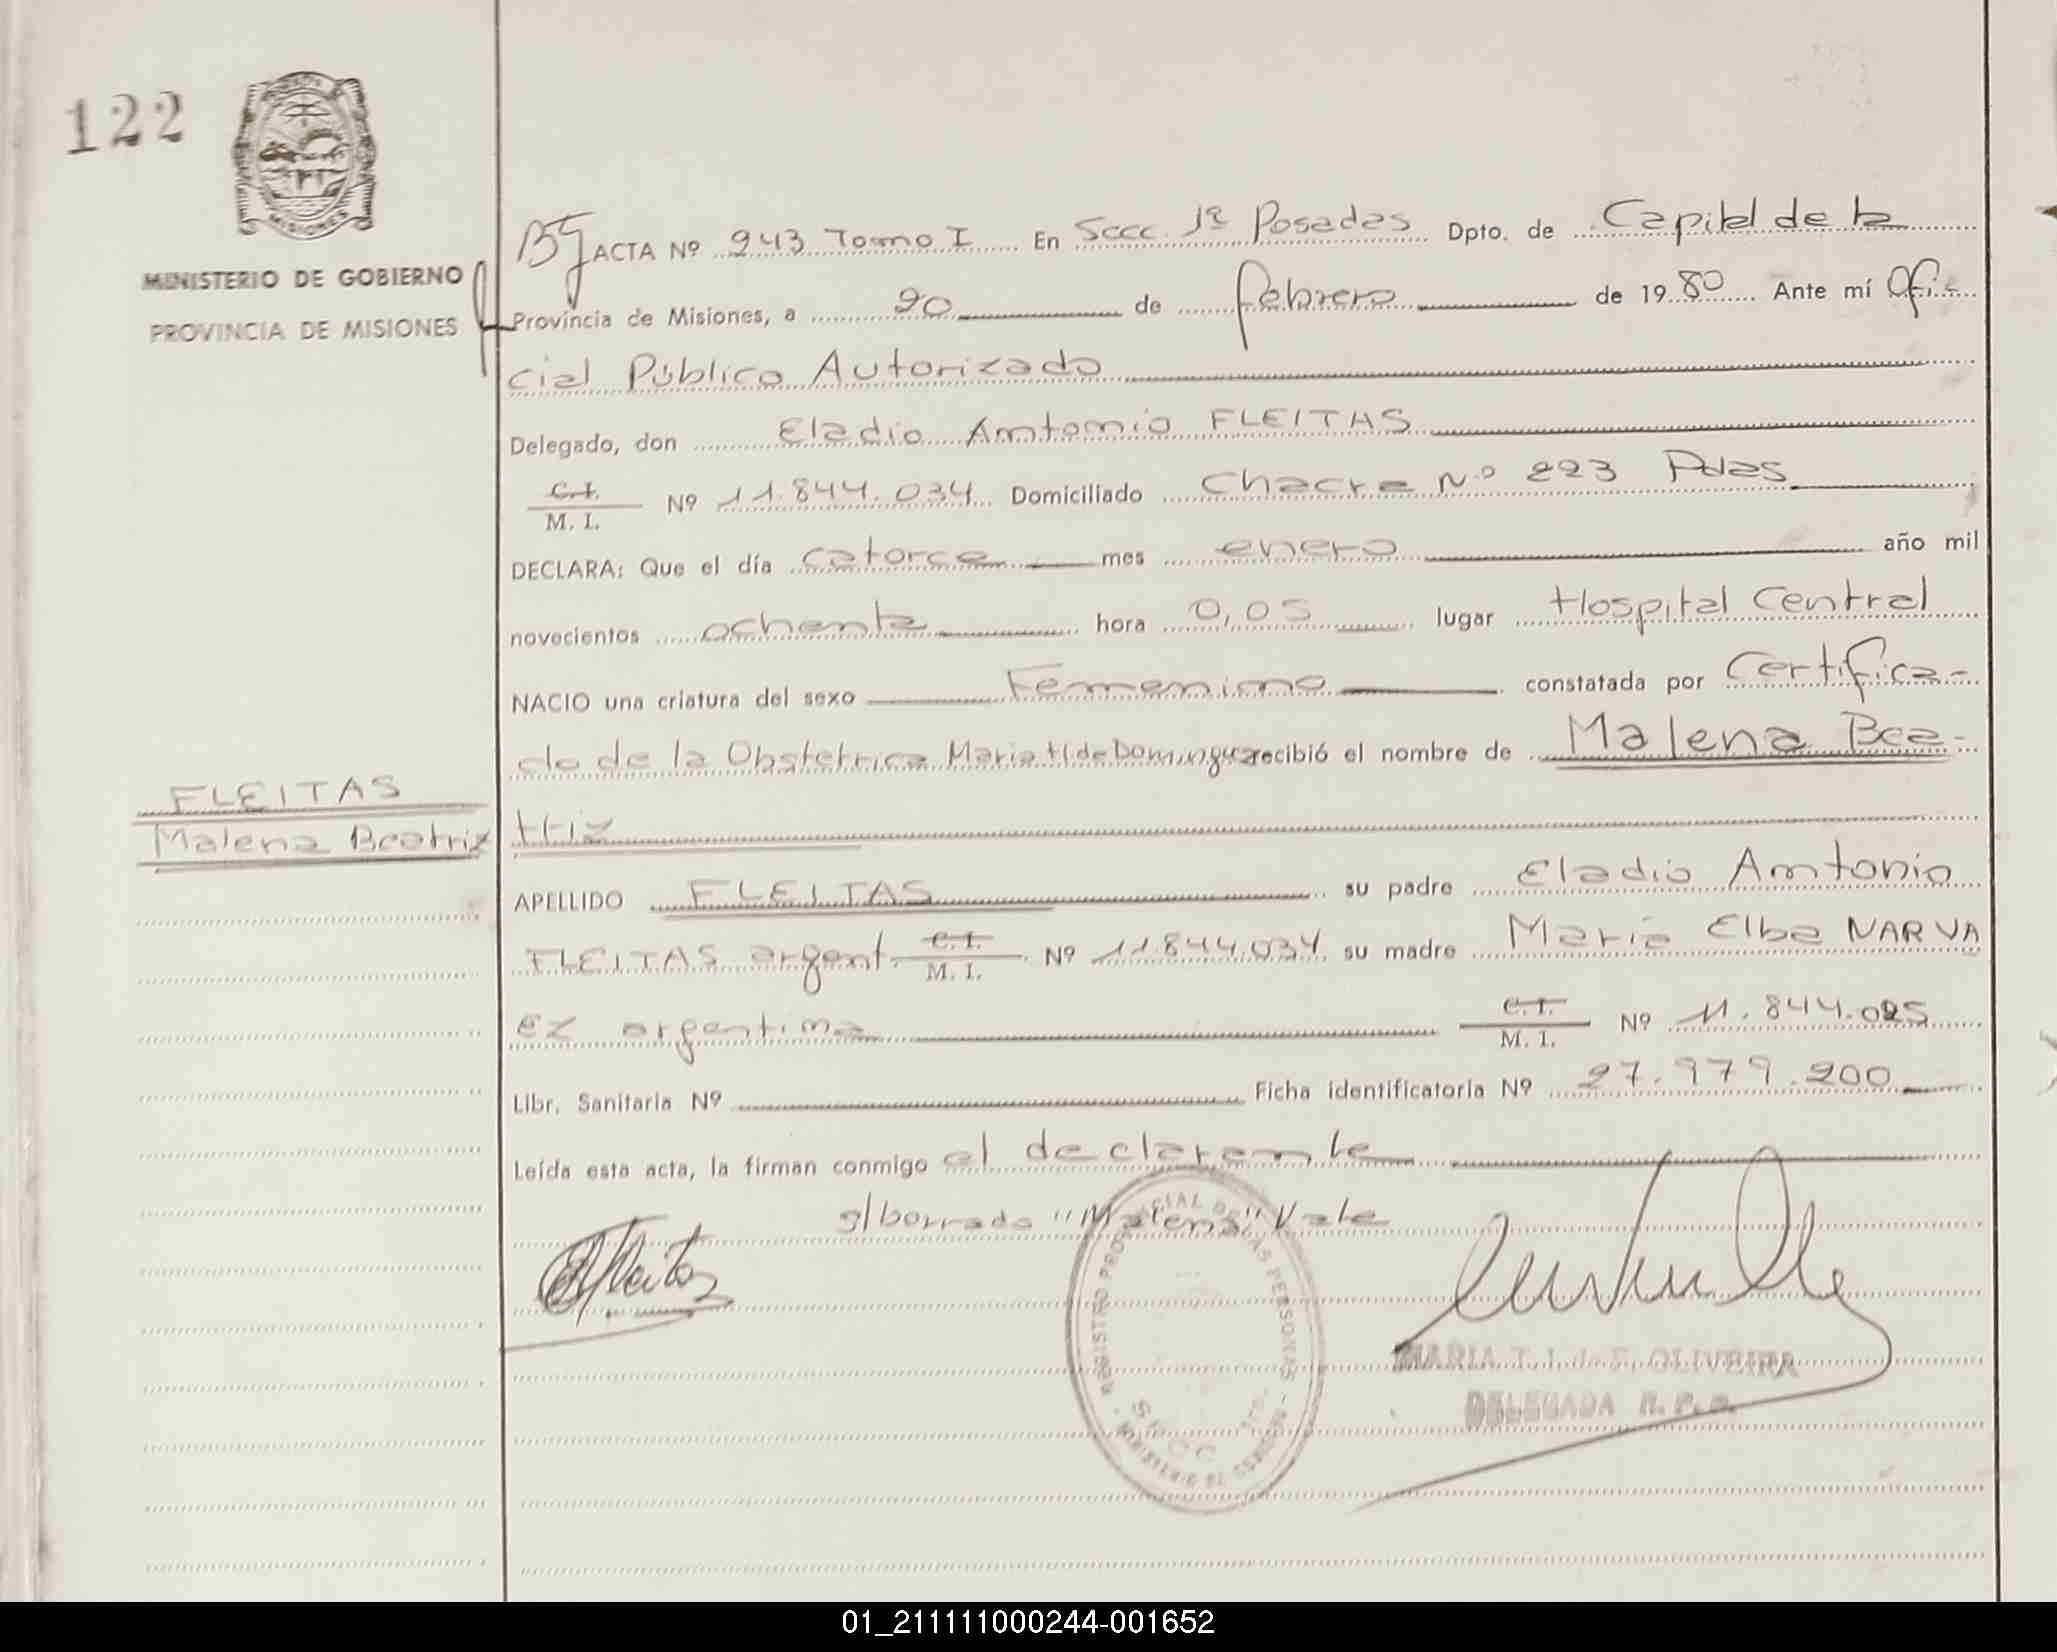 122
MISIONES
MINISTERIO DE GOBIERNO
PROVINCIA DE MISIONES
ACTA Nº 243 Tomo I En Secc. 1ª Posadas Dpto. de Capital de la
Provincia de Misiones, a 20 de febrero de 1980 Ante mí Ofi
cial Público Autorizado
Delegado, don Eladio Antonio FLEITAS
C.I. M. I. Nº 11.844.034 Domiciliado Chacra Nº 223 Pdas
DECLARA: Que el día catorce mes enero año mil
novecientos ochenta hora 0,05 lugar Hospital Central
NACIO una criatura del sexo Femenino constatada por Certifica-
do de la Obstetrica Maria H de Dominguez recibió el nombre de Malena Bea-
triz
FLEITAS
Malena Beatriz
APELLIDO FLEITAS su padre Eladio Antonio
FLEITAS argent. C.I. M. I. Nº 11.844.034 su madre Maria Elba NARVA
EZ argentina C.I. M. I. Nº 11.844.025
Libr. Sanitaria Nº Ficha identificatoria Nº 27.979.200
Leída esta acta, la firman conmigo el declarante
s/borrado "Malena" Vale
REGISTRO PROVINCIAL DE LAS PERSONAS - MINISTERIO DE GOBIERNO
SECC 1ra.
MARIA T. I. de F. OLIVEIRA
DELEGADA R. P. P.
01_211111000244-001652